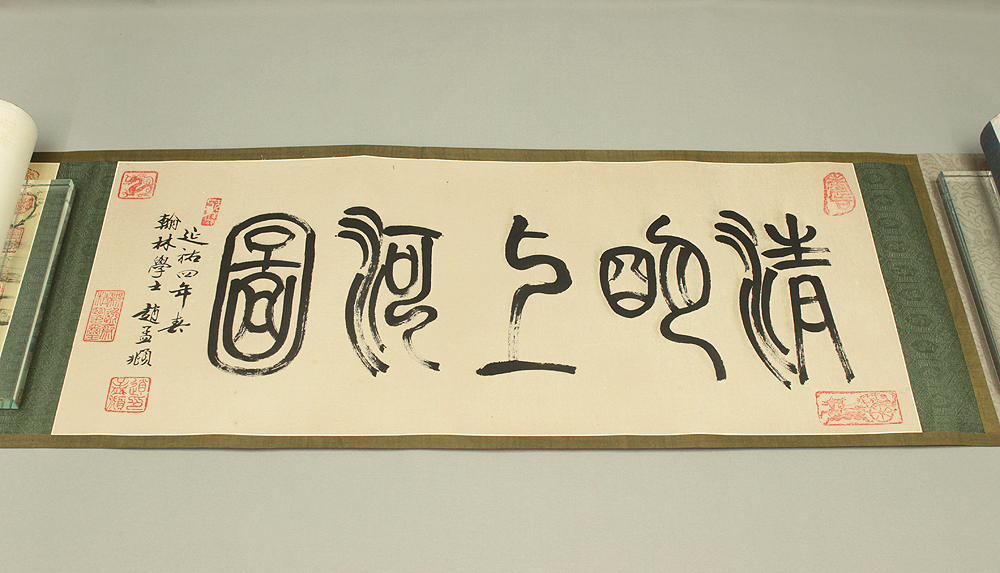 清明上河圖
延祐四年春
翰林學士 趙孟頫